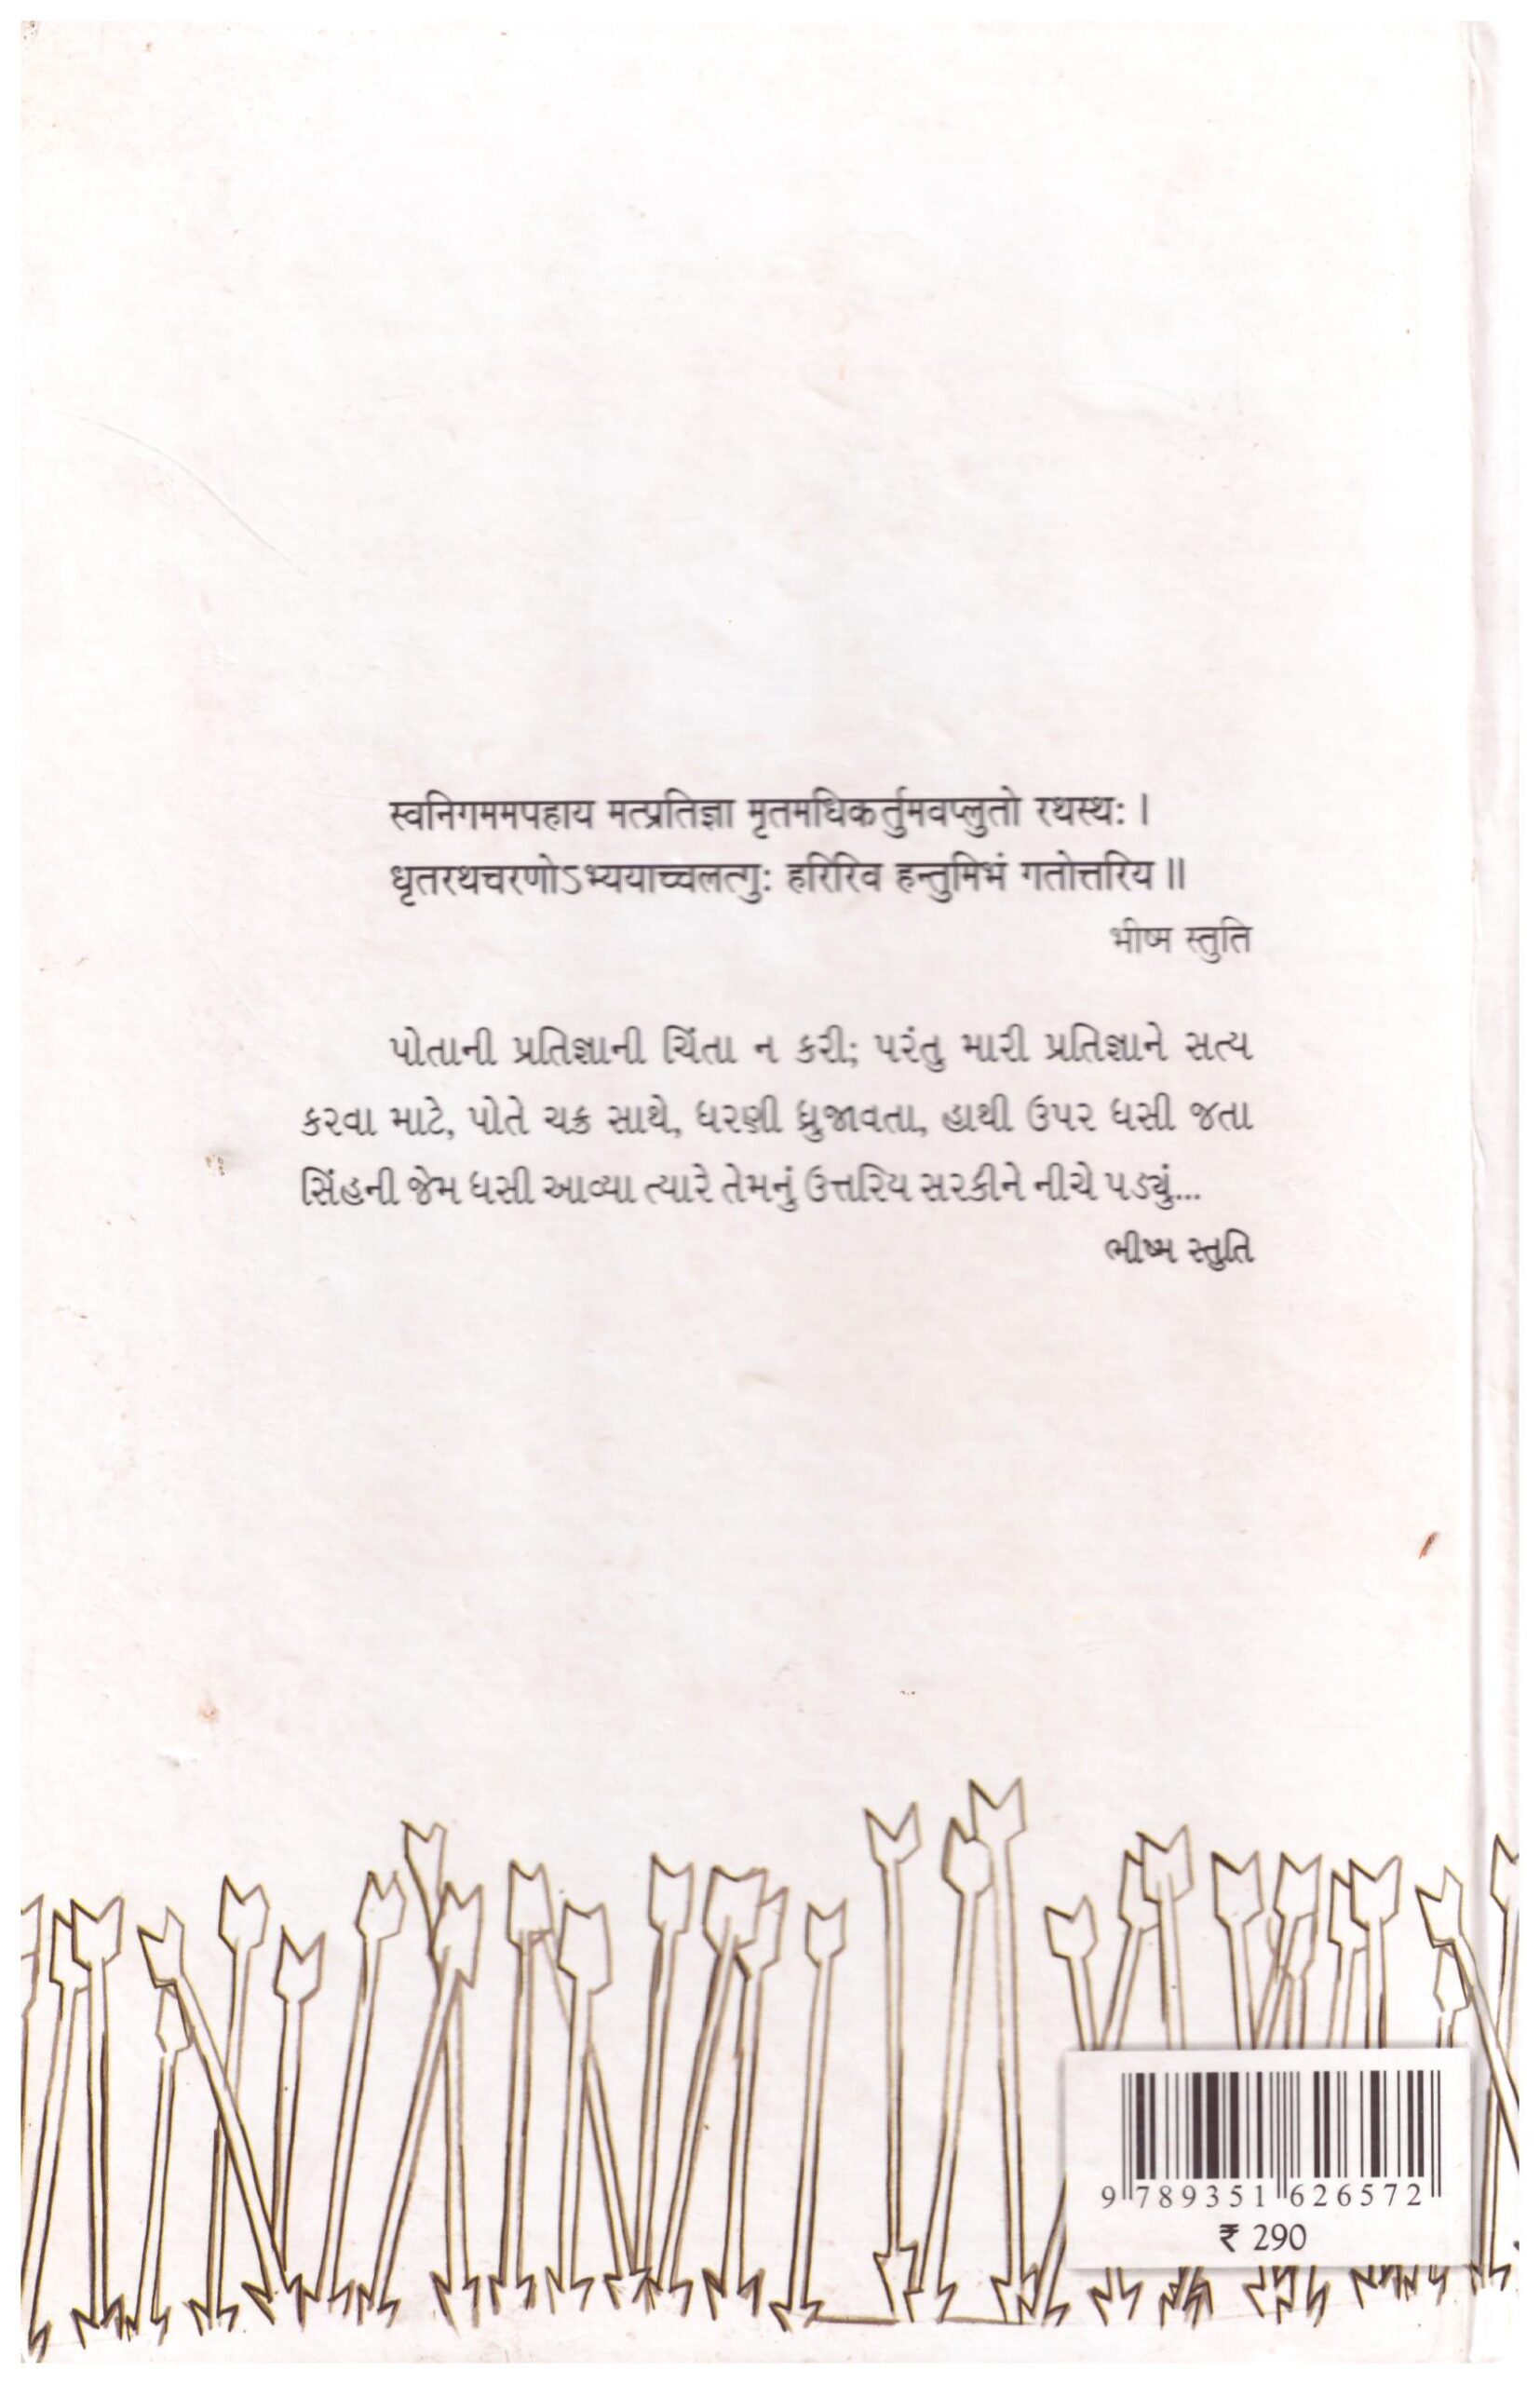 स्वनिगममपहाय मत्प्रतिज्ञा मृतमधिकर्तुमवप्लुतो रथस्थः ।
धृतरथचरणोऽभ्ययाच्चलत्गुः हरिरिव हन्तुमिभं गतोत्तरिय ॥
भीष्म स्तुति
પોતાની પ્રતિજ્ઞાની ચિંતા ન કરી; પરંતુ મારી પ્રતિજ્ઞાને સત્ય
કરવા માટે, પોતે ચક્ર સાથે, ધરણી ધ્રુજાવતા, હાથી ઉપર ધસી જતા
સિંહની જેમ ધસી આવ્યા ત્યારે તેમનું ઉત્તરિય સરકીને નીચે પડ્યું...
ભીષ્મ સ્તુતિ
9 789351 626572
₹ 290